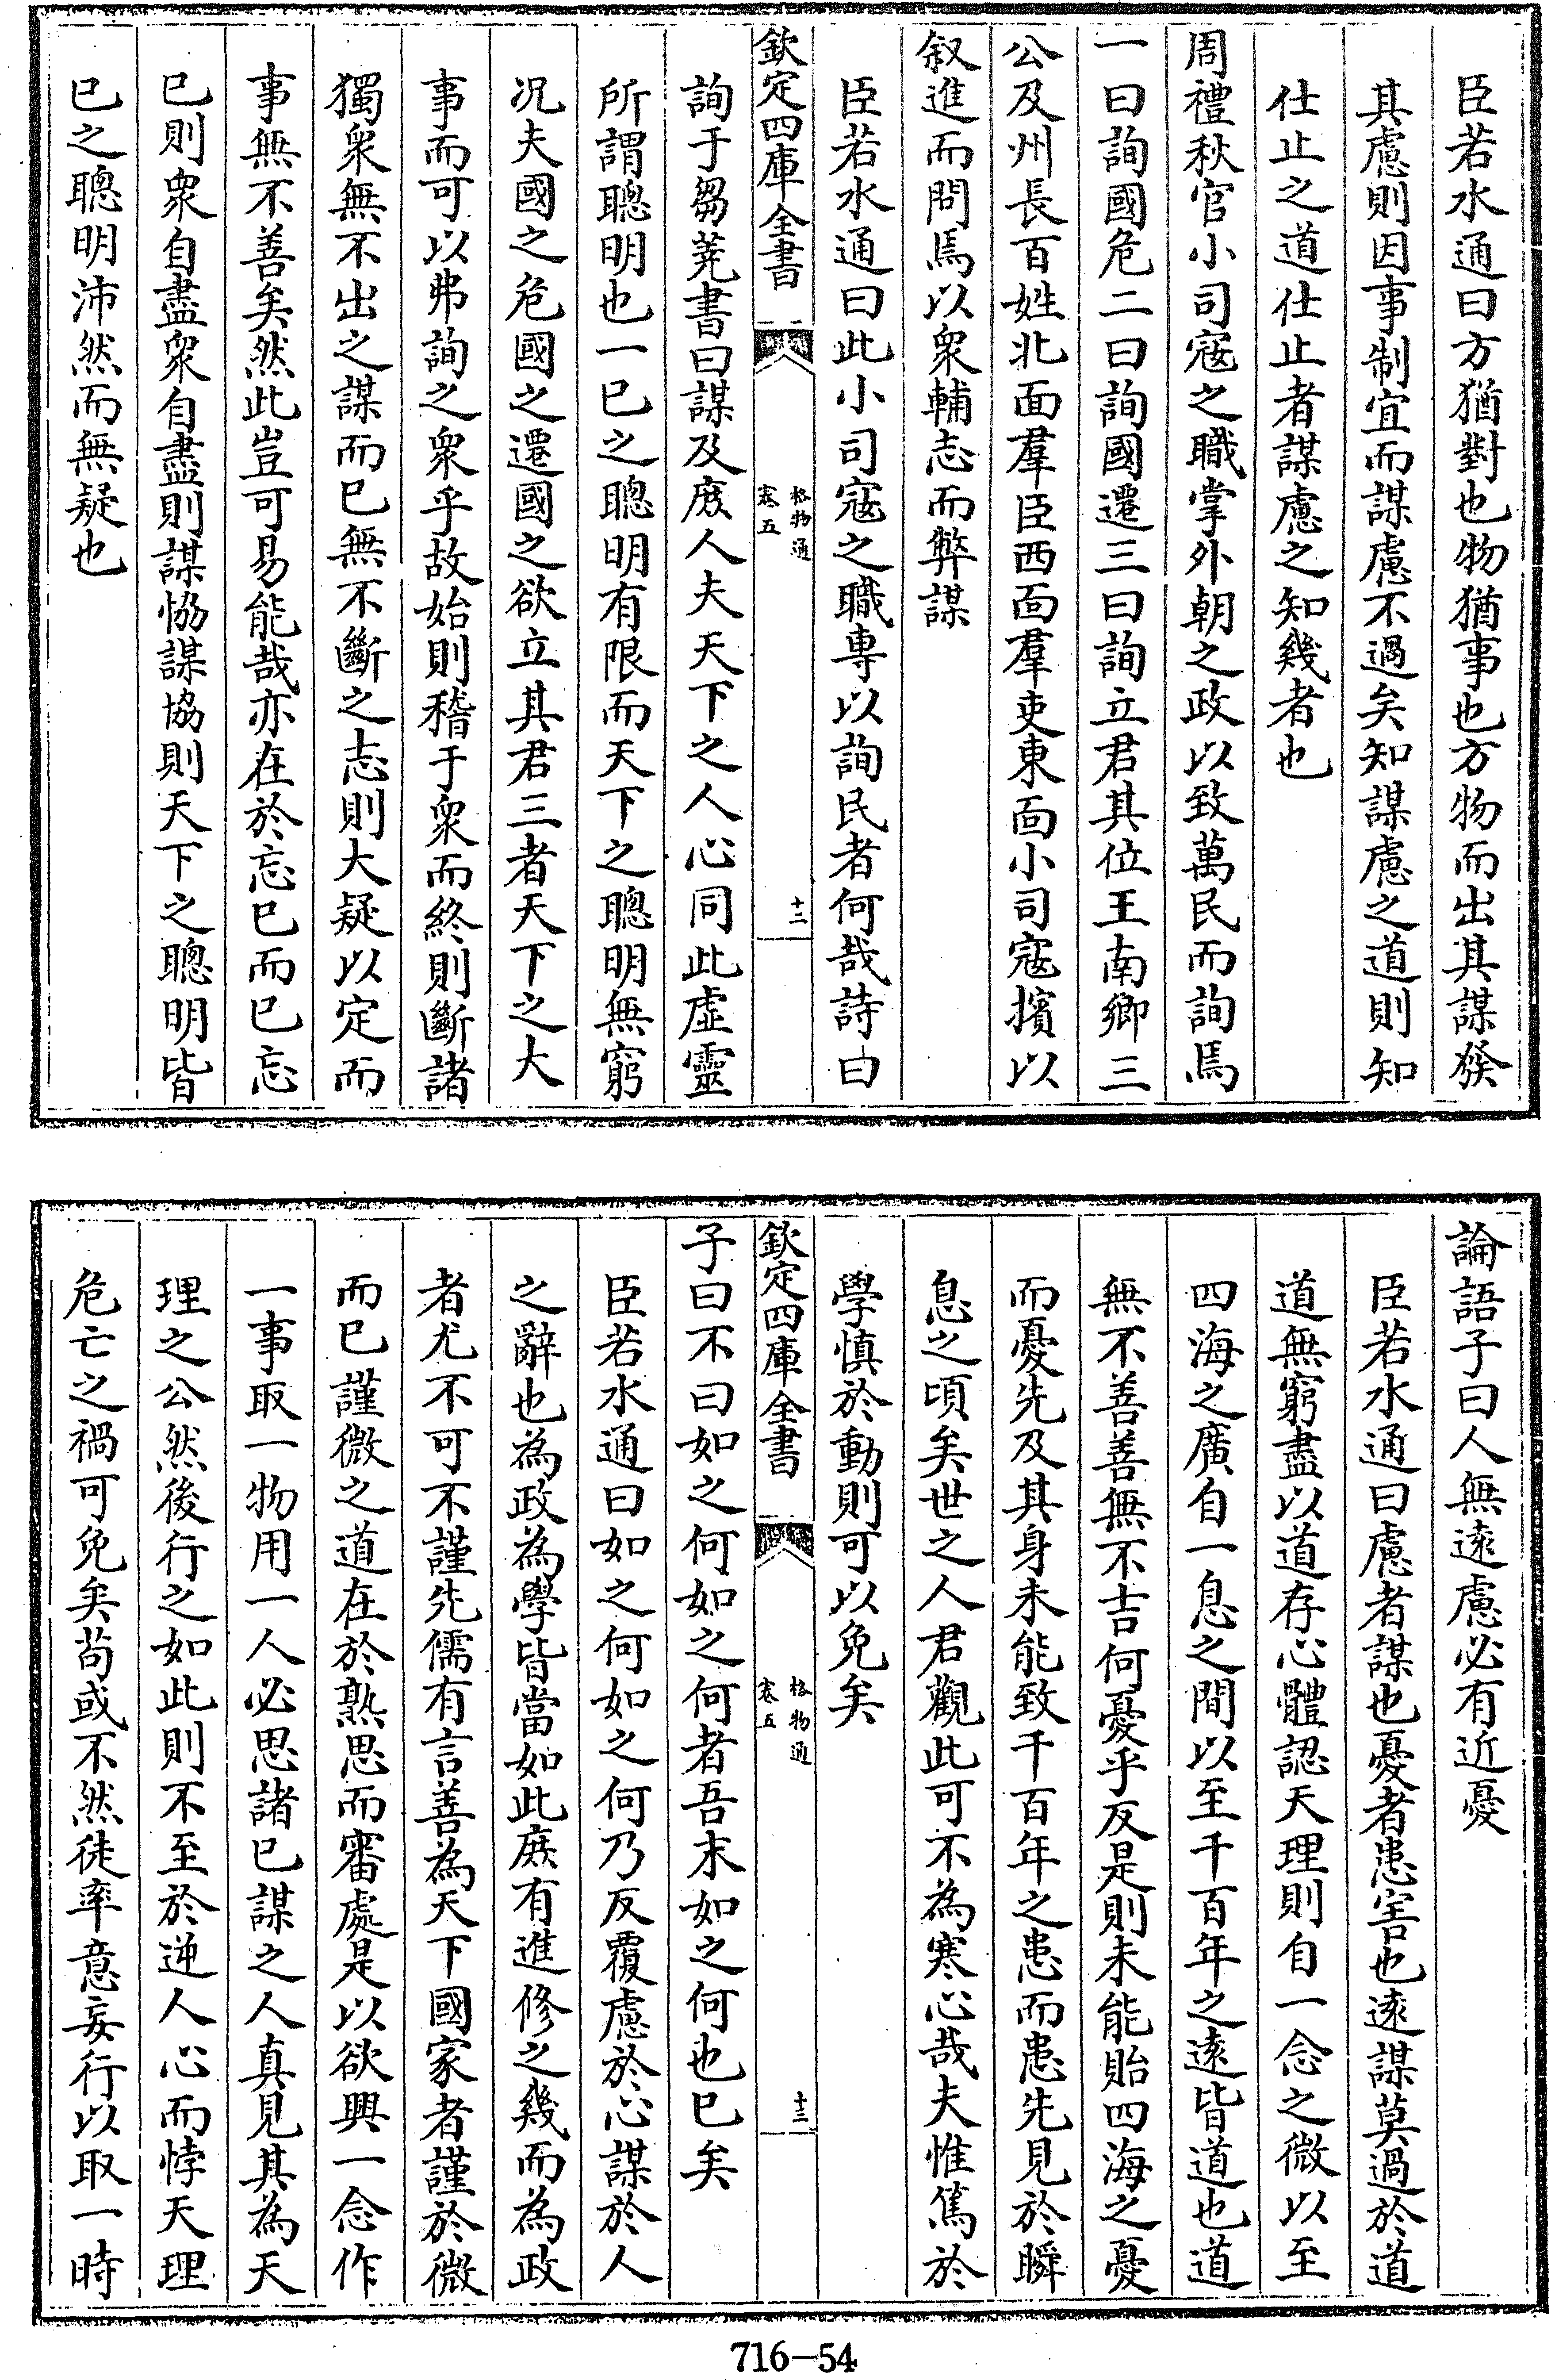 臣若水通曰方猶對也物猶事也方物而出其謀發
其慮則因事制宜而謀慮不過矣知謀慮之道則知
仕止之道仕止者謀慮之知幾者也
周禮秋官小司寇之職掌外朝之政以致萬民而詢焉
一曰詢國危二曰詢國遷三曰詢立君其位王南鄉三
公及州長百姓北面羣臣西面羣吏東面小司寇擯以
叙進而問焉以衆輔志而弊謀
臣若水通曰此小司寇之職專以詢民者何哉詩曰
欽定四庫全書
格物通
卷五
十二
詢于芻蕘書曰謀及庻人夫天下之人心同此虛靈
所謂聰明也一已之聰明有限而天下之聰明無窮
况夫國之危國之遷國之欲立其君三者天下之大
事而可以弗詢之衆乎故始則稽于衆而終則斷諸
獨衆無不出之謀而已無不斷之志則大疑以定而
事無不善矣然此豈可易能哉亦在於忘已而已忘
已則衆自盡衆自盡則謀恊謀協則天下之聰明皆
已之聰明沛然而無疑也
論語子曰人無遠慮必有近憂
臣若水通曰慮者謀也憂者患害也遠謀莫過於道
道無窮盡以道存心體認天理則自一念之微以至
四海之廣自一息之間以至千百年之遠皆道也道
無不善善無不吉何憂乎反是則未能貽四海之憂
而憂先及其身未能致千百年之患而患先見於瞬
息之頃矣世之人君觀此可不為寒心哉夫惟篤於
學慎於動則可以免矣
欽定四庫全書
格物通
卷五
十三
子曰不曰如之何如之何者吾末如之何也已矣
臣若水通曰如之何如之何乃反覆慮於心謀於人
之辭也為政為學皆當如此庻有進修之幾而為政
者尤不可不謹先儒有言善為天下國家者謹於微
而已謹微之道在於熟思而審處是以欲興一念作
一事取一物用一人必思諸已謀之人真見其為天
理之公然後行之如此則不至於逆人心而悖天理
危亡之禍可免矣苟或不然徒率意妄行以取一時
716-54